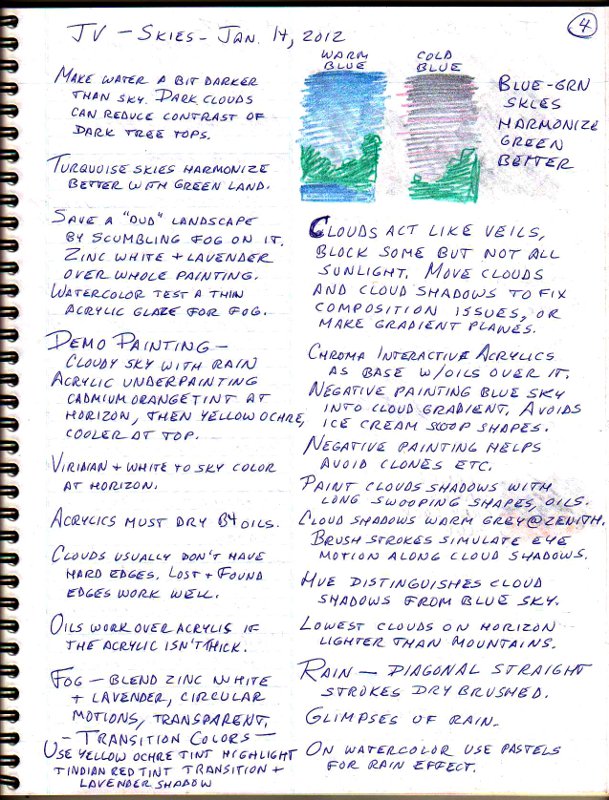 JV – SKIES – JAN. 14, 2012
4
MAKE WATER A BIT DARKER
THAN SKY. DARK CLOUDS
CAN REDUCE CONTRAST OF
DARK TREE TOPS.
TURQUOISE SKIES HARMONIZE
BETTER WITH GREEN LAND.
SAVE A "DUD" LANDSCAPE
BY SCUMBLING FOG ON IT.
ZINC WHITE + LAVENDER
OVER WHOLE PAINTING.
WATERCOLOR TEST A THIN
ACRYLIC GLAZE FOR FOG.
DEMO PAINTING –
CLOUDY SKY WITH RAIN
ACRYLIC UNDERPAINTING
CADMIUM ORANGE TINT AT
HORIZON, THEN YELLOW OCHRE,
COOLER AT TOP.
VIRIDIAN + WHITE TO SKY COLOR
AT HORIZON.
ACRYLICS MUST DRY B4 OILS.
CLOUDS USUALLY DON'T HAVE
HARD EDGES. LOST + FOUND
EDGES WORK WELL.
OILS WORK OVER ACRYLIS IF
THE ACRYLIC ISN'T THICK.
FOG – BLEND ZINC WHITE
+ LAVENDER, CIRCULAR
MOTIONS, TRANSPARENT.
– TRANSITION COLORS –
USE YELLOW OCHRE TINT HIGHLIGHT
TINDIAN RED TINT TRANSITION +
LAVENDER SHADOW
WARM
BLUE
COLD
BLUE
BLUE-GRN
SKIES
HARMONIZE
GREEN
BETTER
CLOUDS ACT LIKE VEILS,
BLOCK SOME BUT NOT ALL
SUNLIGHT. MOVE CLOUDS
AND CLOUD SHADOWS TO FIX
COMPOSITION ISSUES, OR
MAKE GRADIENT PLANES.
CHROMA INTERACTIVE ACRYLICS
AS BASE W/OILS OVER IT.
NEGATIVE PAINTING BLUE SKY
INTO CLOUD GRADIENT. AVOIDS
ICE CREAM SCOOP SHAPES.
NEGATIVE PAINTING HELPS
AVOID CLONES ETC.
PAINT CLOUDS SHADOWS WITH
LONG SWOOPING SHAPES, OILS.
CLOUD SHADOWS WARM GREY @ ZENITH.
BRUSH STROKES SIMULATE EYE
MOTION ALONG CLOUD SHADOWS.
HUE DISTINGUISHES CLOUD
SHADOWS FROM BLUE SKY.
LOWEST CLOUDS ON HORIZON
LIGHTER THAN MOUNTAINS.
RAIN – DIAGONAL STRAIGHT
STROKES DRY BRUSHED.
GLIMPSES OF RAIN.
ON WATERCOLOR USE PASTELS
FOR RAIN EFFECT.